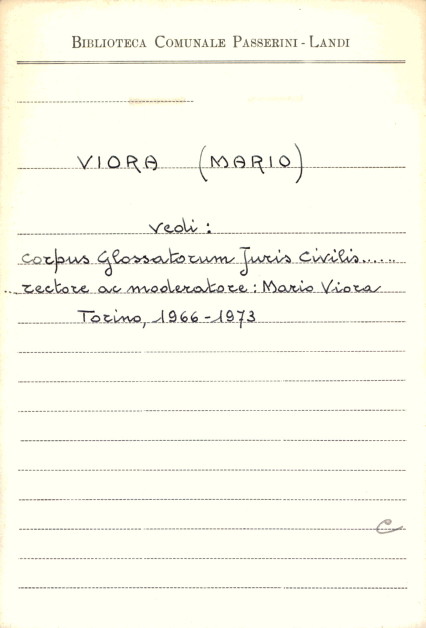 BIBLIOTECA COMUNALE PASSERINI - LANDI
VIORA (MARIO)
vedi:
corpus Glossatorum Juris Civilis......
...rectore ac moderatore: Mario Viora
Torino, 1966-1973
C